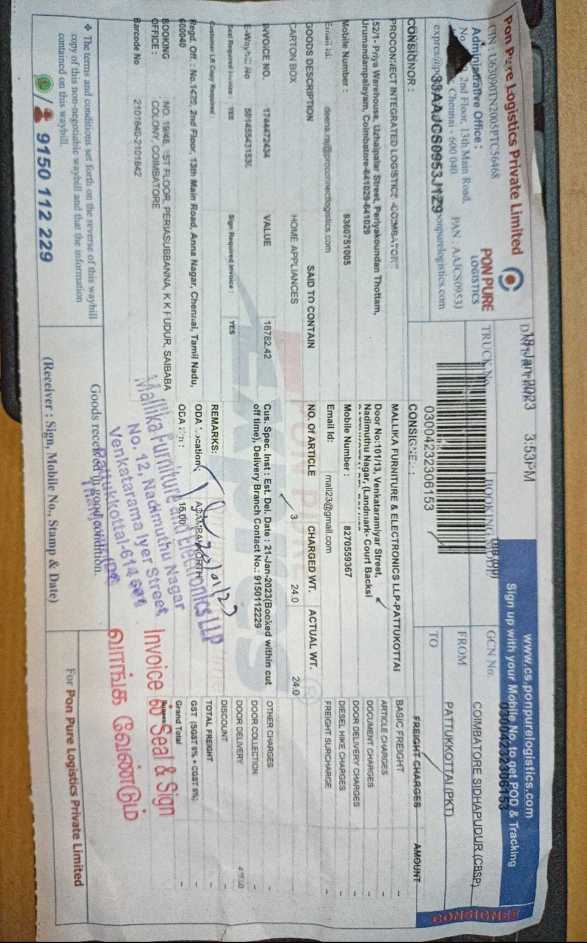 Pon Pure Logistics Private Limited
PON PURE
LOGISTICS
Administrative Office :
2nd Floor, 13th Main Road,
Chennai - 600 040
PAN : AAJCS0953J
33AAJCS0953J1Z9
18-Jan-2023 3:53PM
TRUCK No.
03004232306153
www.cs.ponpurelogistics.com
Sign up with your Mobile No to get POD & Tracking
GCN No.
03004232306153
FROM
COIMBATORE SIDHAPUDUR (CBSP)
TO
PATTUKKOTTAI (PKT)
CONSIGNOR :
PROCONNECT INTEGRATED LOGISTICS -COIMBATORE
52/1- Priya Warehouse, Uzhaipalar Street, Periyakoundan Thottam,
Urumandampalayam, Coimbatore-641029-641029
Mobile Number : 9360751005
Email Id.
GOODS DESCRIPTION SAID TO CONTAIN
CARTON BOX HOME APPLIANCES
INVOICE NO. 1744472434 VALUE 18782.42
E-Waybill No
Seal Required Invoice YES Sign Required Invoice : YES
Customer LR Copy Required :
Regd. Off. : No.1429, 2nd Floor, 13th Main Road, Anna Nagar, Chennai, Tamil Nadu,
600040
BOOKING OFFICE : NO. 19/46, 1ST FLOOR, PERIASUBBANNA, K K PUDUR, SAIBABA
COLONY, COIMBATORE
Barcode No 2101640-2101642
CONSIGNEE :
MALLIKA FURNITURE & ELECTRONICS LLP-PATTUKOTTAI
Door No:101/13, Venkataramiyar Street,
Nadimuthu Nagar, (Landmark- Court Backsi
Mobile Number : 8270559367
Email Id: mall23@gmail.com
NO. OF ARTICLE CHARGED WT. ACTUAL WT.
3 24.0 24.0
Cus. Spec. Inst : Est. Del. Date : 21-Jan-2023(Booked within cut
off time), Delivery Branch Contact No.: 9150112229
REMARKS:
ODA Location
FREIGHT CHARGES AMOUNT
BASIC FREIGHT -
ARTICLE CHARGES -
DOCUMENT CHARGES -
DOOR DELIVERY CHARGES -
DIESEL HIKE CHARGES -
FREIGHT SURCHARGE -
OTHER CHARGES -
DOOR COLLECTION -
DOOR DELIVERY
DISCOUNT -
TOTAL FREIGHT -
GST (SGST 6% + CGST 6%) -
Grand Total -
Mallika Furniture & Electronics LLP
No. 12, Nadimuthu Nagar
Venkatarama Iyer Street,
Pattukkottai-614 601
Invoice ல் Seal & Sign
வாங்க வேண்டும்
❖ The terms and conditions set forth on the reverse of this waybill
copy of this non-negotiable waybill and that the information
contained on this waybill.
Goods received in good condition.
9150 112 229
(Receiver : Sign, Mobile No., Stamp & Date)
For Pon Pure Logistics Private Limited